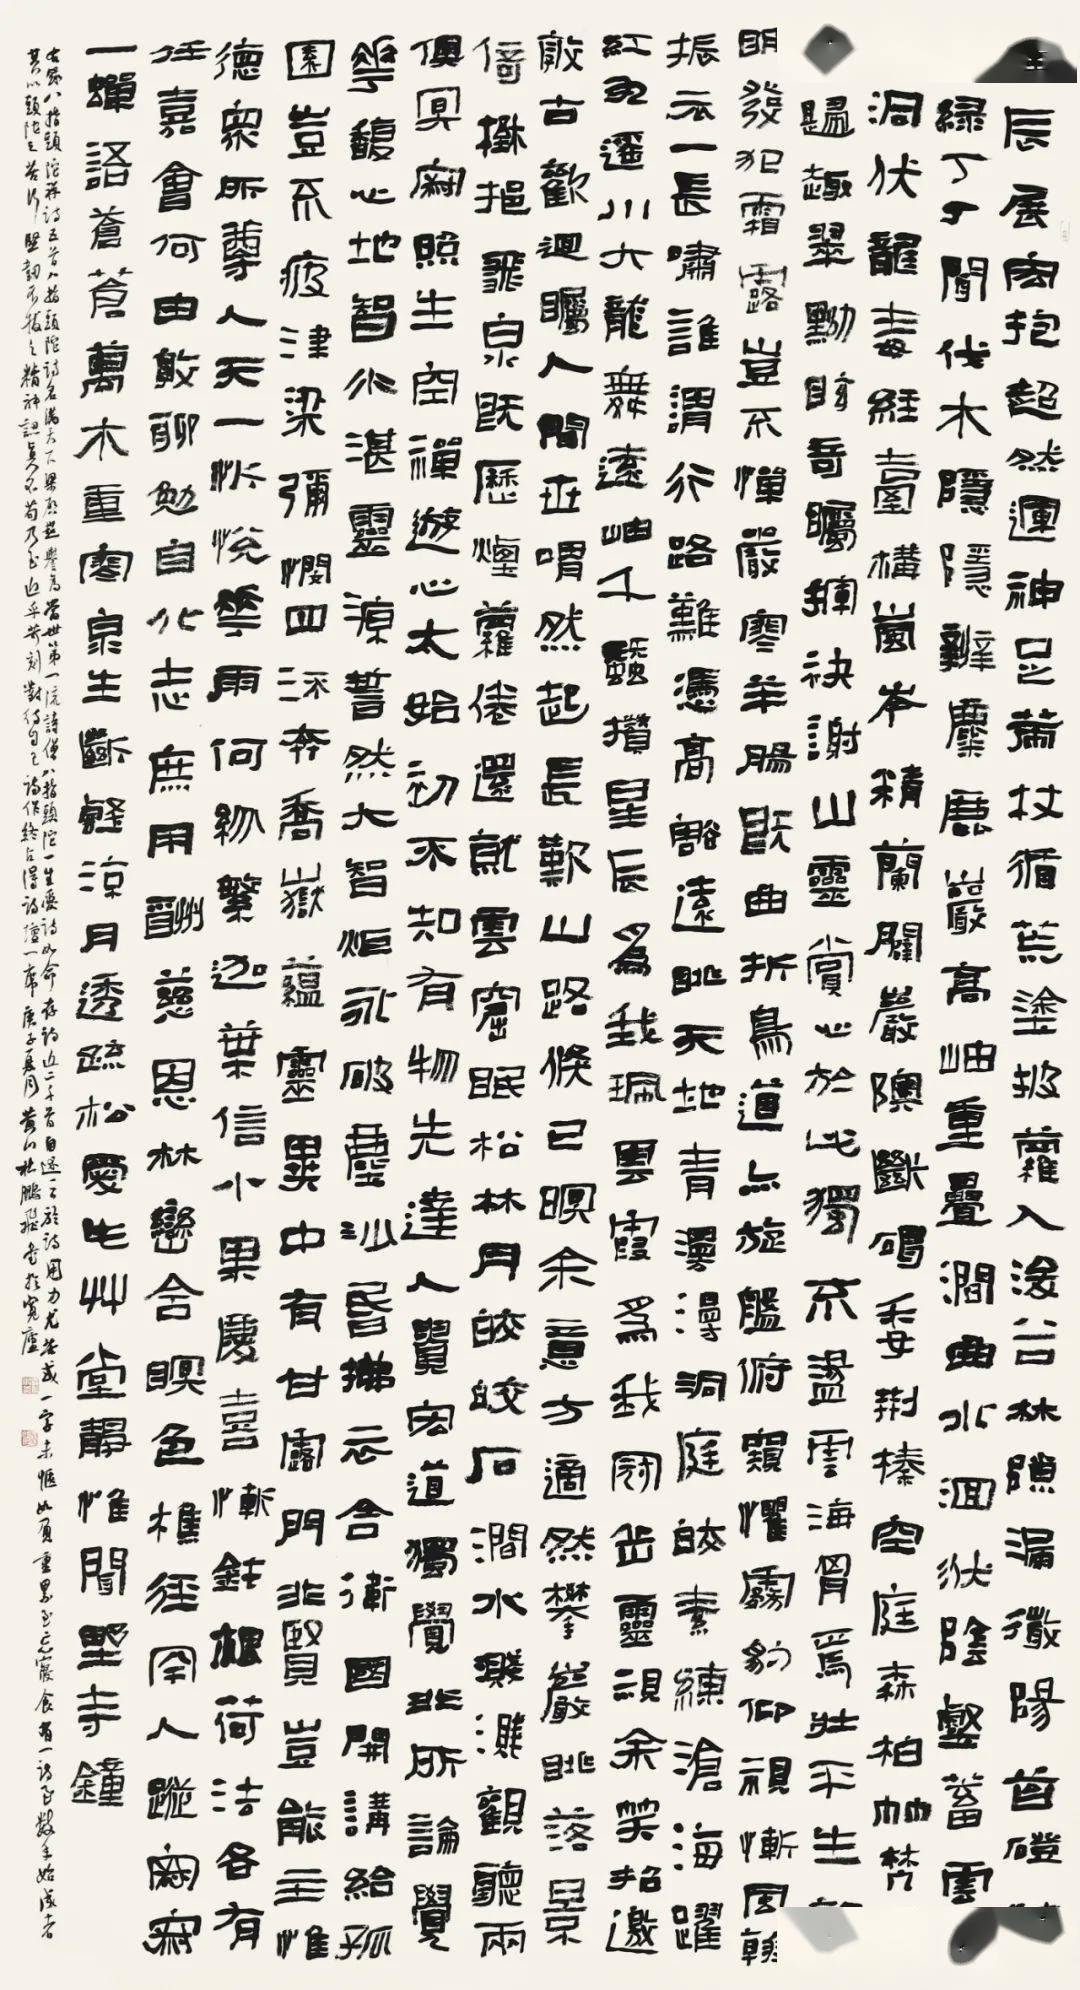 辰展玄抱超然運神足荷杖循荒塗披蘿入深谷林隙漏微陽苔磴
綠丁丁聞伐木隱隱辨麋鹿巖高岫重疊澗曲水洄洑陰壑蓄雲
洞伏龍毒經臺構崗岑積蘭閟巖隩斷碣委荆榛空庭森柏竹梵
歸趣翠黝眩吾矚揮袂謝山靈賞心於此獨不盡雲海胸焉壯平生
明發犯霜露豈不憚嚴寒羊腸既曲折鳥道亦旋盤俯窺懼霧豹仰視慚風翰
振衣一長嘯誰謂行路難憑高豁遠眺天地青漫漫洞庭皎素練滄海躍
紅丸遥川六龍舞遠岫千蠶攢星辰爲我珮雲霞爲我冠岳靈視余笑招邀
敦古歡迴矚人間世喟然起長歎山路倏已暝余意方適然攀巖眺落景
倚樹挹飛泉既歷煙蘿倦還就雲窟眠松林月皎皎石澗水濺濺觀聽兩
俱冥寂照生空禪遊心太始初不知有物先達人貴玄道獨覺非所論覺
華馥心地智水湛靈源誓然大智炬永破塵沙昏拂衣舍衛國開講給孤
園豈不疲津梁彌憫四流奔喬嶽蘊靈異中有甘露門非賢豈能主惟
德衆所尊人天一忻悦華雨何物繁迦葉信小果慶喜慚鈍根荷法各有
任嘉會何由敦聊勉自他志庶用酬慈恩林巒含暝色樵徑罕人蹤寂寂
一蟬語蒼蒼萬木重寒泉生斷壑涼月透疏松愛此艸堂靜惟聞野寺鐘
右錄八指頭陀禪詩五首八指頭陀詩名滿天下梁啟超譽爲當世第一流詩僧八指頭陀一生愛詩如命存詩近二千首自述於詩用力尤苦或一字未愜如負重累至忘寢食有一詩至數年始成者
其以頭陀之苦行堅韌不拔之精神認真不苟乃至近乎苛刻對待自己詩作終占得詩壇一席庚子夏月黃山杜鵬飛書於寬廬